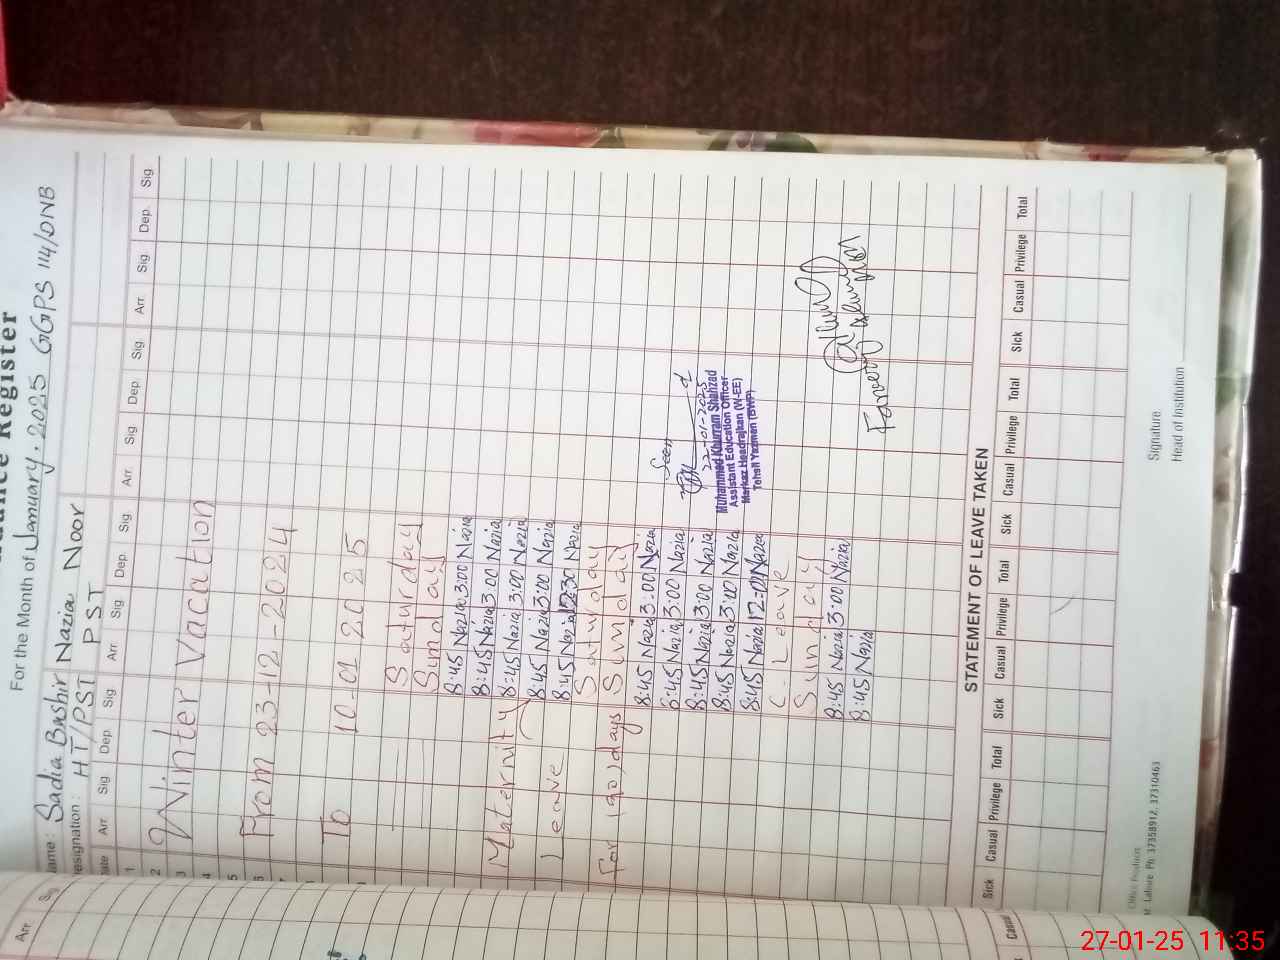 For the Month of January. 2025 GGPS 114/DNB
Name: Sadia Bashir Nazia Noor
Designation: HT/PST PST
Date Arr Sig Dep. Sig Arr Sig Dep. Sig Arr. Sig Dep. Sig Arr. Sig Dep. Sig
1
2
3
4
5
6
Winter Vacation
From 23-12-2024
To 10-01 2025
Saturday
Sunday
8:45 Nazia 3:00 Nazia
8:45 Nazia 3:00 Nazia
Maternity 8:45 Nazia 3:00 Nazia
Leave 8:45 Nazia 3:00 Nazia
8:45 Nazia 12:30 Nazia
Saturday
For (90) days Sunday
8:45 Nazia 3:00 Nazia
8:45 Nazia 3:00 Nazia
8:45 Nazia 3:00 Nazia
8:45 Nazia 3:00 Nazia
8:45 Nazia Nazia
C. Leave
Sunday
8:45 Nazia 3:00 Nazia
8:45 Nazia
Seen
22-01-2025
Muhammad Khurram Shahzad
Assistant Education Officer
Markaz Headrajkan (W-EE)
Tehsil Yazman (BWP)
STATEMENT OF LEAVE TAKEN
Sick Casual Privilege Total Sick Casual Privilege Total Sick Casual Privilege Total Sick Casual Privilege Total
Signature
Head of Institution
Lahore Ph: 37358912, 37310463
Arr. Sig
Casual
27-01-25 11:35